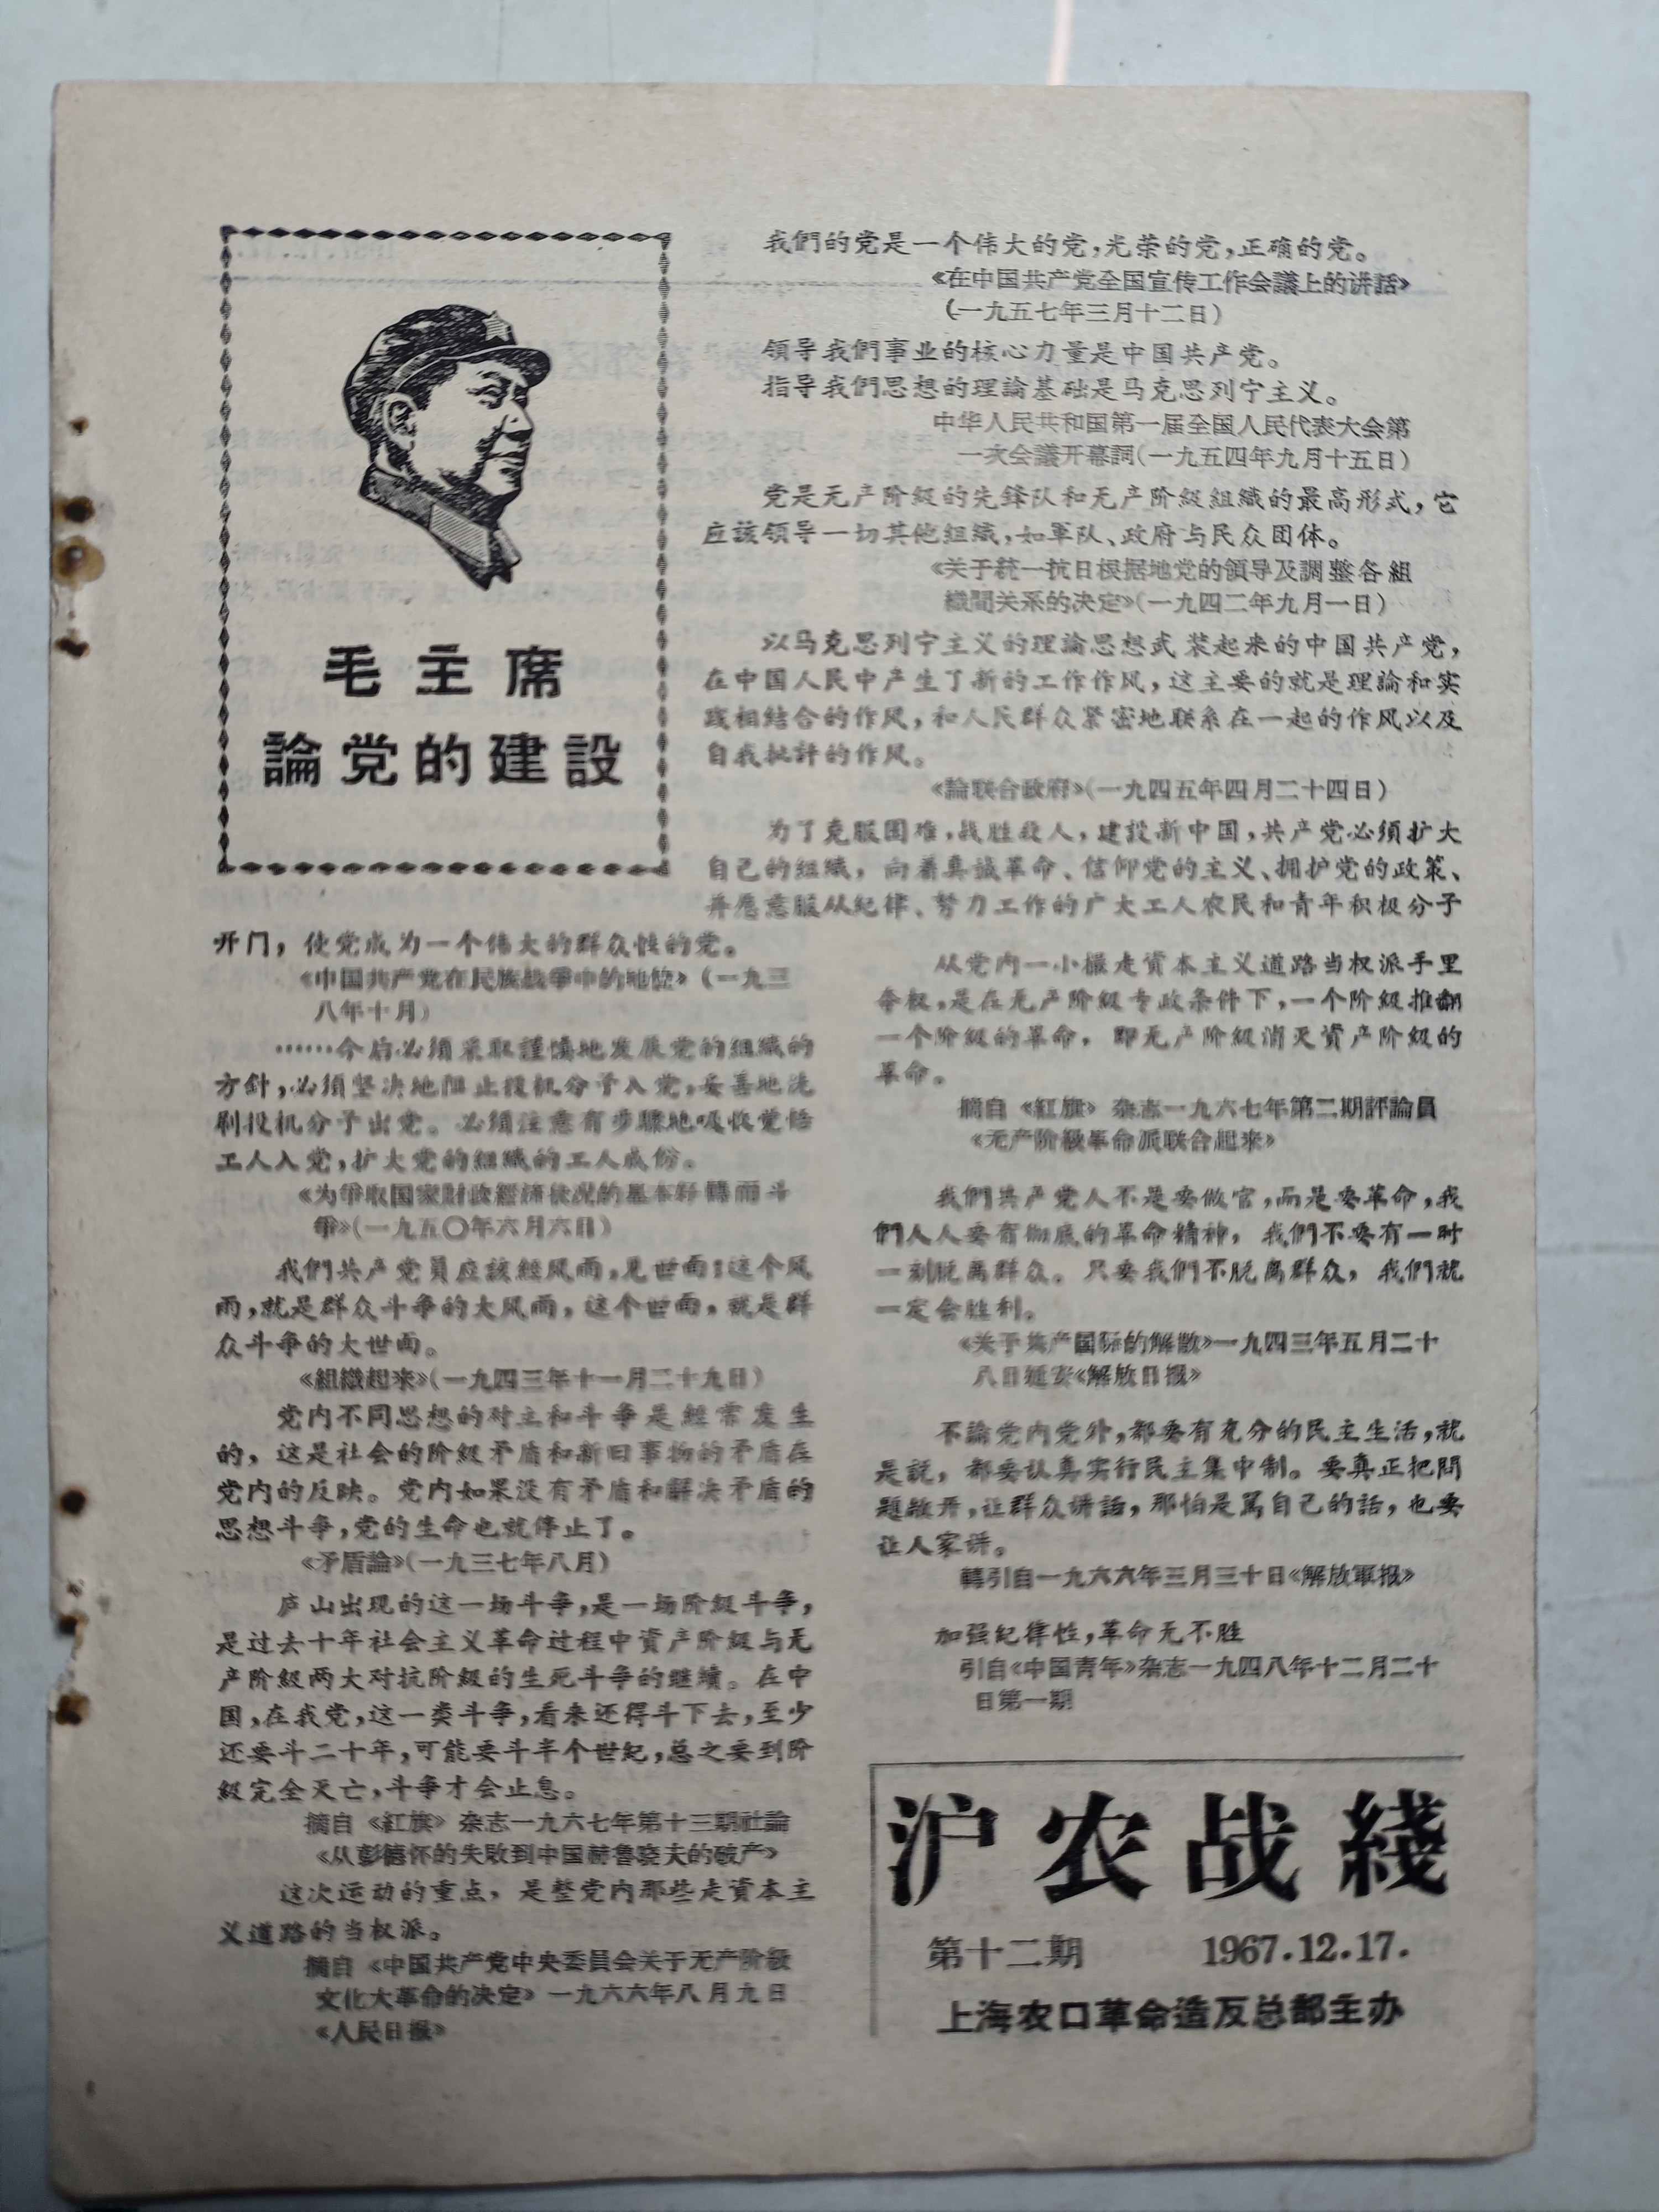 毛主席
論党的建設
我們的党是一个伟大的党,光荣的党,正确的党。
《在中国共产党全国宣传工作会議上的讲話》
(一九五七年三月十二日)
領导我們事业的核心力量是中国共产党。
指导我們思想的理論基础是马克思列宁主义。
中华人民共和国第一届全国人民代表大会第
一次会議开幕詞(一九五四年九月十五日)
党是无产阶級的先鋒队和无产阶級組織的最高形式,它
应該領导一切其他組織,如軍队、政府与民众团体。
《关于統一抗日根据地党的領导及調整各組
織間关系的决定》(一九四二年九月一日)
以马克思列宁主义的理論思想武装起来的中国共产党,
在中国人民中产生了新的工作作风,这主要的就是理論和实
践相結合的作风,和人民群众紧密地联系在一起的作风以及
自我批評的作风。
《論联合政府》(一九四五年四月二十四日)
为了克服困难,战胜敌人,建設新中国,共产党必須扩大
自己的組織,向着真誠革命、信仰党的主义、拥护党的政策、
并愿意服从紀律、努力工作的广大工人农民和青年积极分子
开门,使党成为一个伟大的群众性的党。
《中国共产党在民族战爭中的地位》(一九三
八年十月)
……今后必須采取謹慎地发展党的組織的
方針,必須坚决地阻止投机分子入党,妥善地洗
刷投机分子出党。必須注意有步驟地吸收覚悟
工人入党,扩大党的組織的工人成份。
《为爭取国家財政經济状况的基本好轉而斗
爭》(一九五〇年六月六日)
我們共产党員应該經风雨,见世面;这个风
雨,就是群众斗争的大风雨,这个世面,就是群
众斗争的大世面。
《組織起来》(一九四三年十一月二十九日)
党内不同思想的对立和斗争是經常发生
的,这是社会的阶級矛盾和新旧事物的矛盾在
党内的反映。党内如果没有矛盾和解决矛盾的
思想斗争,党的生命也就停止了。
《矛盾論》(一九三七年八月)
庐山出现的这一场斗争,是一场阶級斗争,
是过去十年社会主义革命过程中資产阶級与无
产阶級两大对抗阶級的生死斗争的继續。在中
国,在我党,这一类斗争,看来还得斗下去,至少
还要斗二十年,可能要斗半个世紀,总之要到阶
級完全灭亡,斗争才会止息。
摘自《紅旗》杂志一九六七年第十三期社論
《从彭德怀的失敗到中国赫鲁晓夫的破产》
这次运动的重点,是整党内那些走資本主
义道路的当权派。
摘自《中国共产党中央委員会关于无产阶級
文化大革命的决定》一九六六年八月九日
《人民日报》
从党内一小撮走資本主义道路当权派手里
夺权,是在无产阶級专政条件下,一个阶級推翻
一个阶級的革命,即无产阶級消灭資产阶級的
革命。
摘自《紅旗》杂志一九六七年第二期評論員
《无产阶級革命派联合起来》
我們共产党人不是要做官,而是要革命,我
們人人要有彻底的革命精神,我們不要有一时
一刻脱离群众。只要我們不脱离群众,我們就
一定会胜利。
《关于共产国际的解散》一九四三年五月二十
八日延安《解放日报》
不論党内党外,都要有充分的民主生活,就
是說,都要认真实行民主集中制。要真正把問
題敞开,让群众讲話,那怕是罵自己的話,也要
让人家讲。
轉引自一九六六年三月三十日《解放軍报》
加强紀律性,革命无不胜
引自《中国青年》杂志一九四八年十二月二十
日第一期
沪农战綫
第十二期 1967.12.17.
上海农口革命造反总部主办